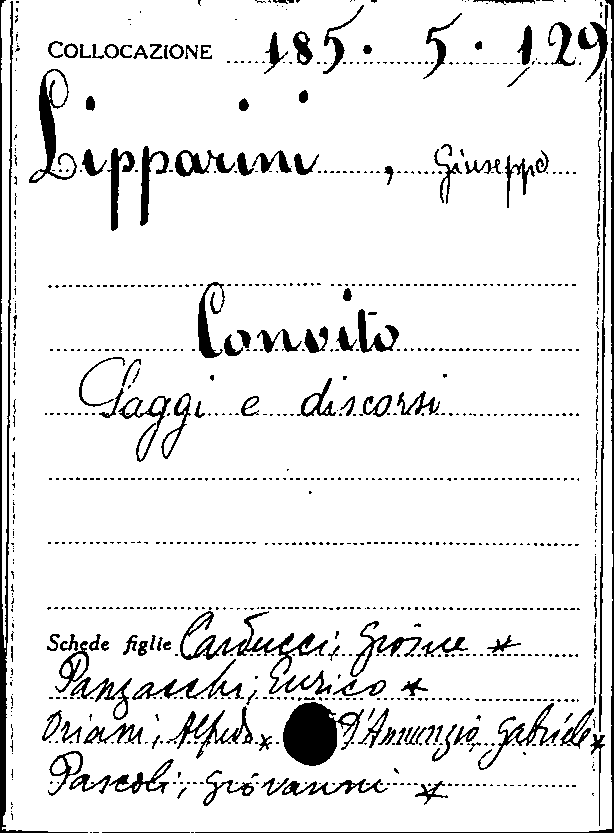 COLLOCAZIONE 185. 5. 129
Lipparini, Giuseppe
Convito
Saggi e discorsi
Schede figlie Carducci, Giosue *
Panzacchi, Enrico *
Oriani, Alfredo * D'Annunzio, Gabriele *
Pascoli, Giovanni *